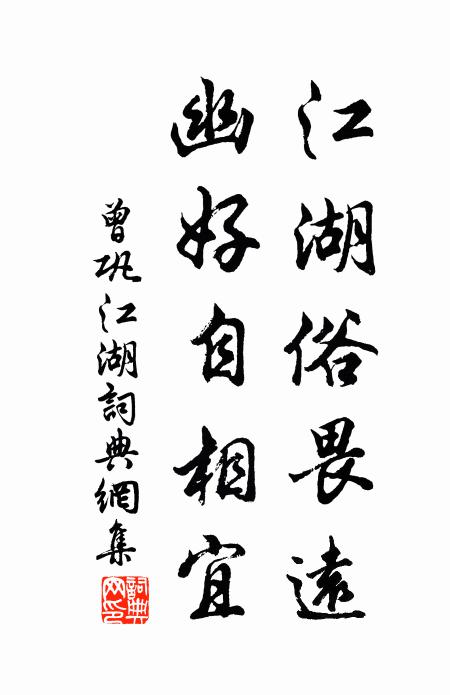 江湖俗畏遠
幽好自相宜
曾巩江湖詞典網集
詞典
网印